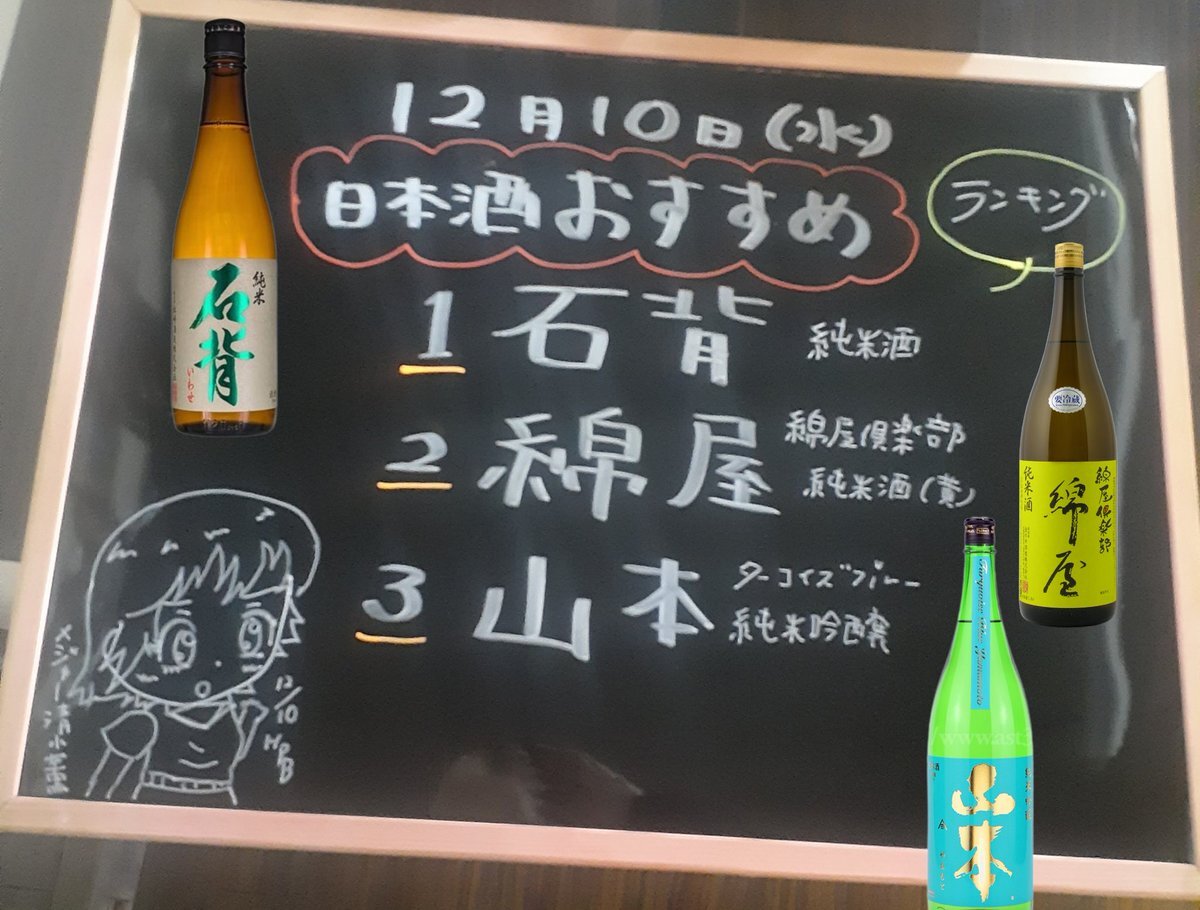 12月10日(水)
日本酒おすすめ
ランキング
1 石背 純米酒
2 綿屋 綿屋倶楽部
純米酒(黄)
3 山本 ターコイズブルー
純米吟醸
メジャー清水重
12/10
HPB
純米
石背
いわせ
要冷蔵
綿屋倶楽部
綿屋
純米酒
Turquoise Blue Yamamoto
www.ast
純米吟醸
山本
やまもと